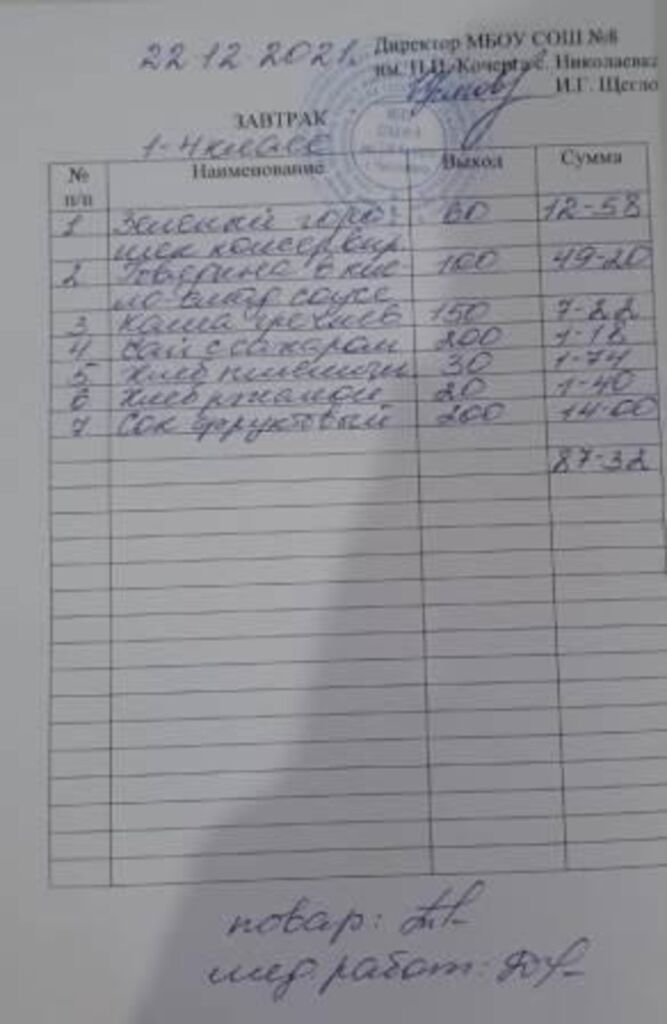 22.12.2021г. Директор МБОУ СОШ №8
им. П.И. Кочерга с. Николаевка
И.Г. Щегло
ЗАВТРАК
1-4 класс
№ п/п Наименование Выход Сумма
1 Зеленый горо 60 12-58
шек консервир
2 Говядина в кис 100 49-20
ло-слад соусе
3 Каша гречнев 150 7-22
4 Чай с сахаром 200 1-18
5 Хлеб пшеничн 30 1-74
6 Хлеб ржаной 20 1-40
7 Сок фруктовый 200 14-00
87-32
повар:
мед работ: